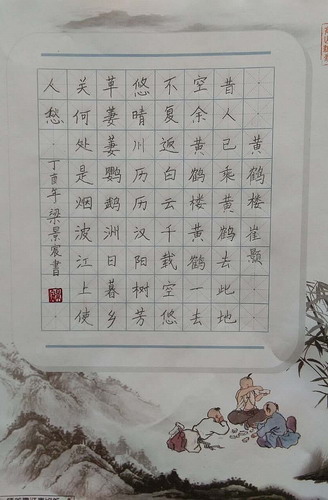 黄鹤楼 崔颢
昔人已乘黄鹤去此地
空余黄鹤楼黄鹤一去
不复返白云千载空悠
悠晴川历历汉阳树芳
草萋萋鹦鹉洲日暮乡
关何处是烟波江上使
人愁 丁酉年 梁景宸書